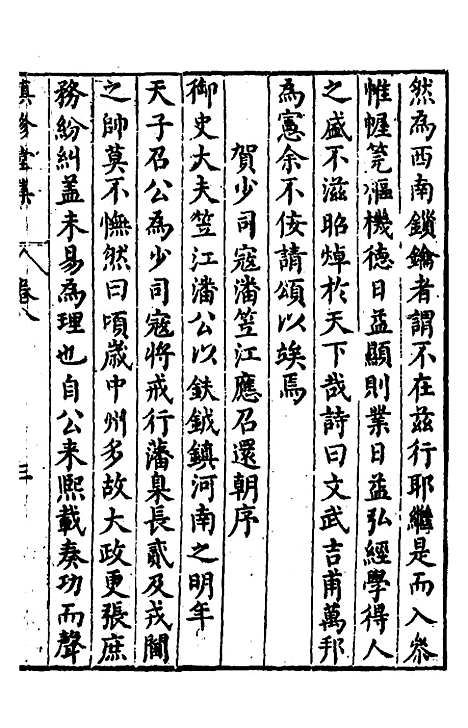 然為西南鎖鑰者謂不在茲行耶繼是而入叅
帷幄筦樞機德日益顯則業日益弘經學得人
之盛不滋昭焯於天下哉詩曰文武吉甫萬邦
為憲余不佞請頌以竢焉
賀少司寇潘笠江應召還朝序
御史大夫笠江潘公以鈇鉞鎮河南之明年
天子召公為少司寇將戒行藩臬長貳及戎閫
之帥莫不憮然曰頃歲中州多故大政更張庶
務紛糾盖未易為理也自公来熙載奏功而聲
卷八
三